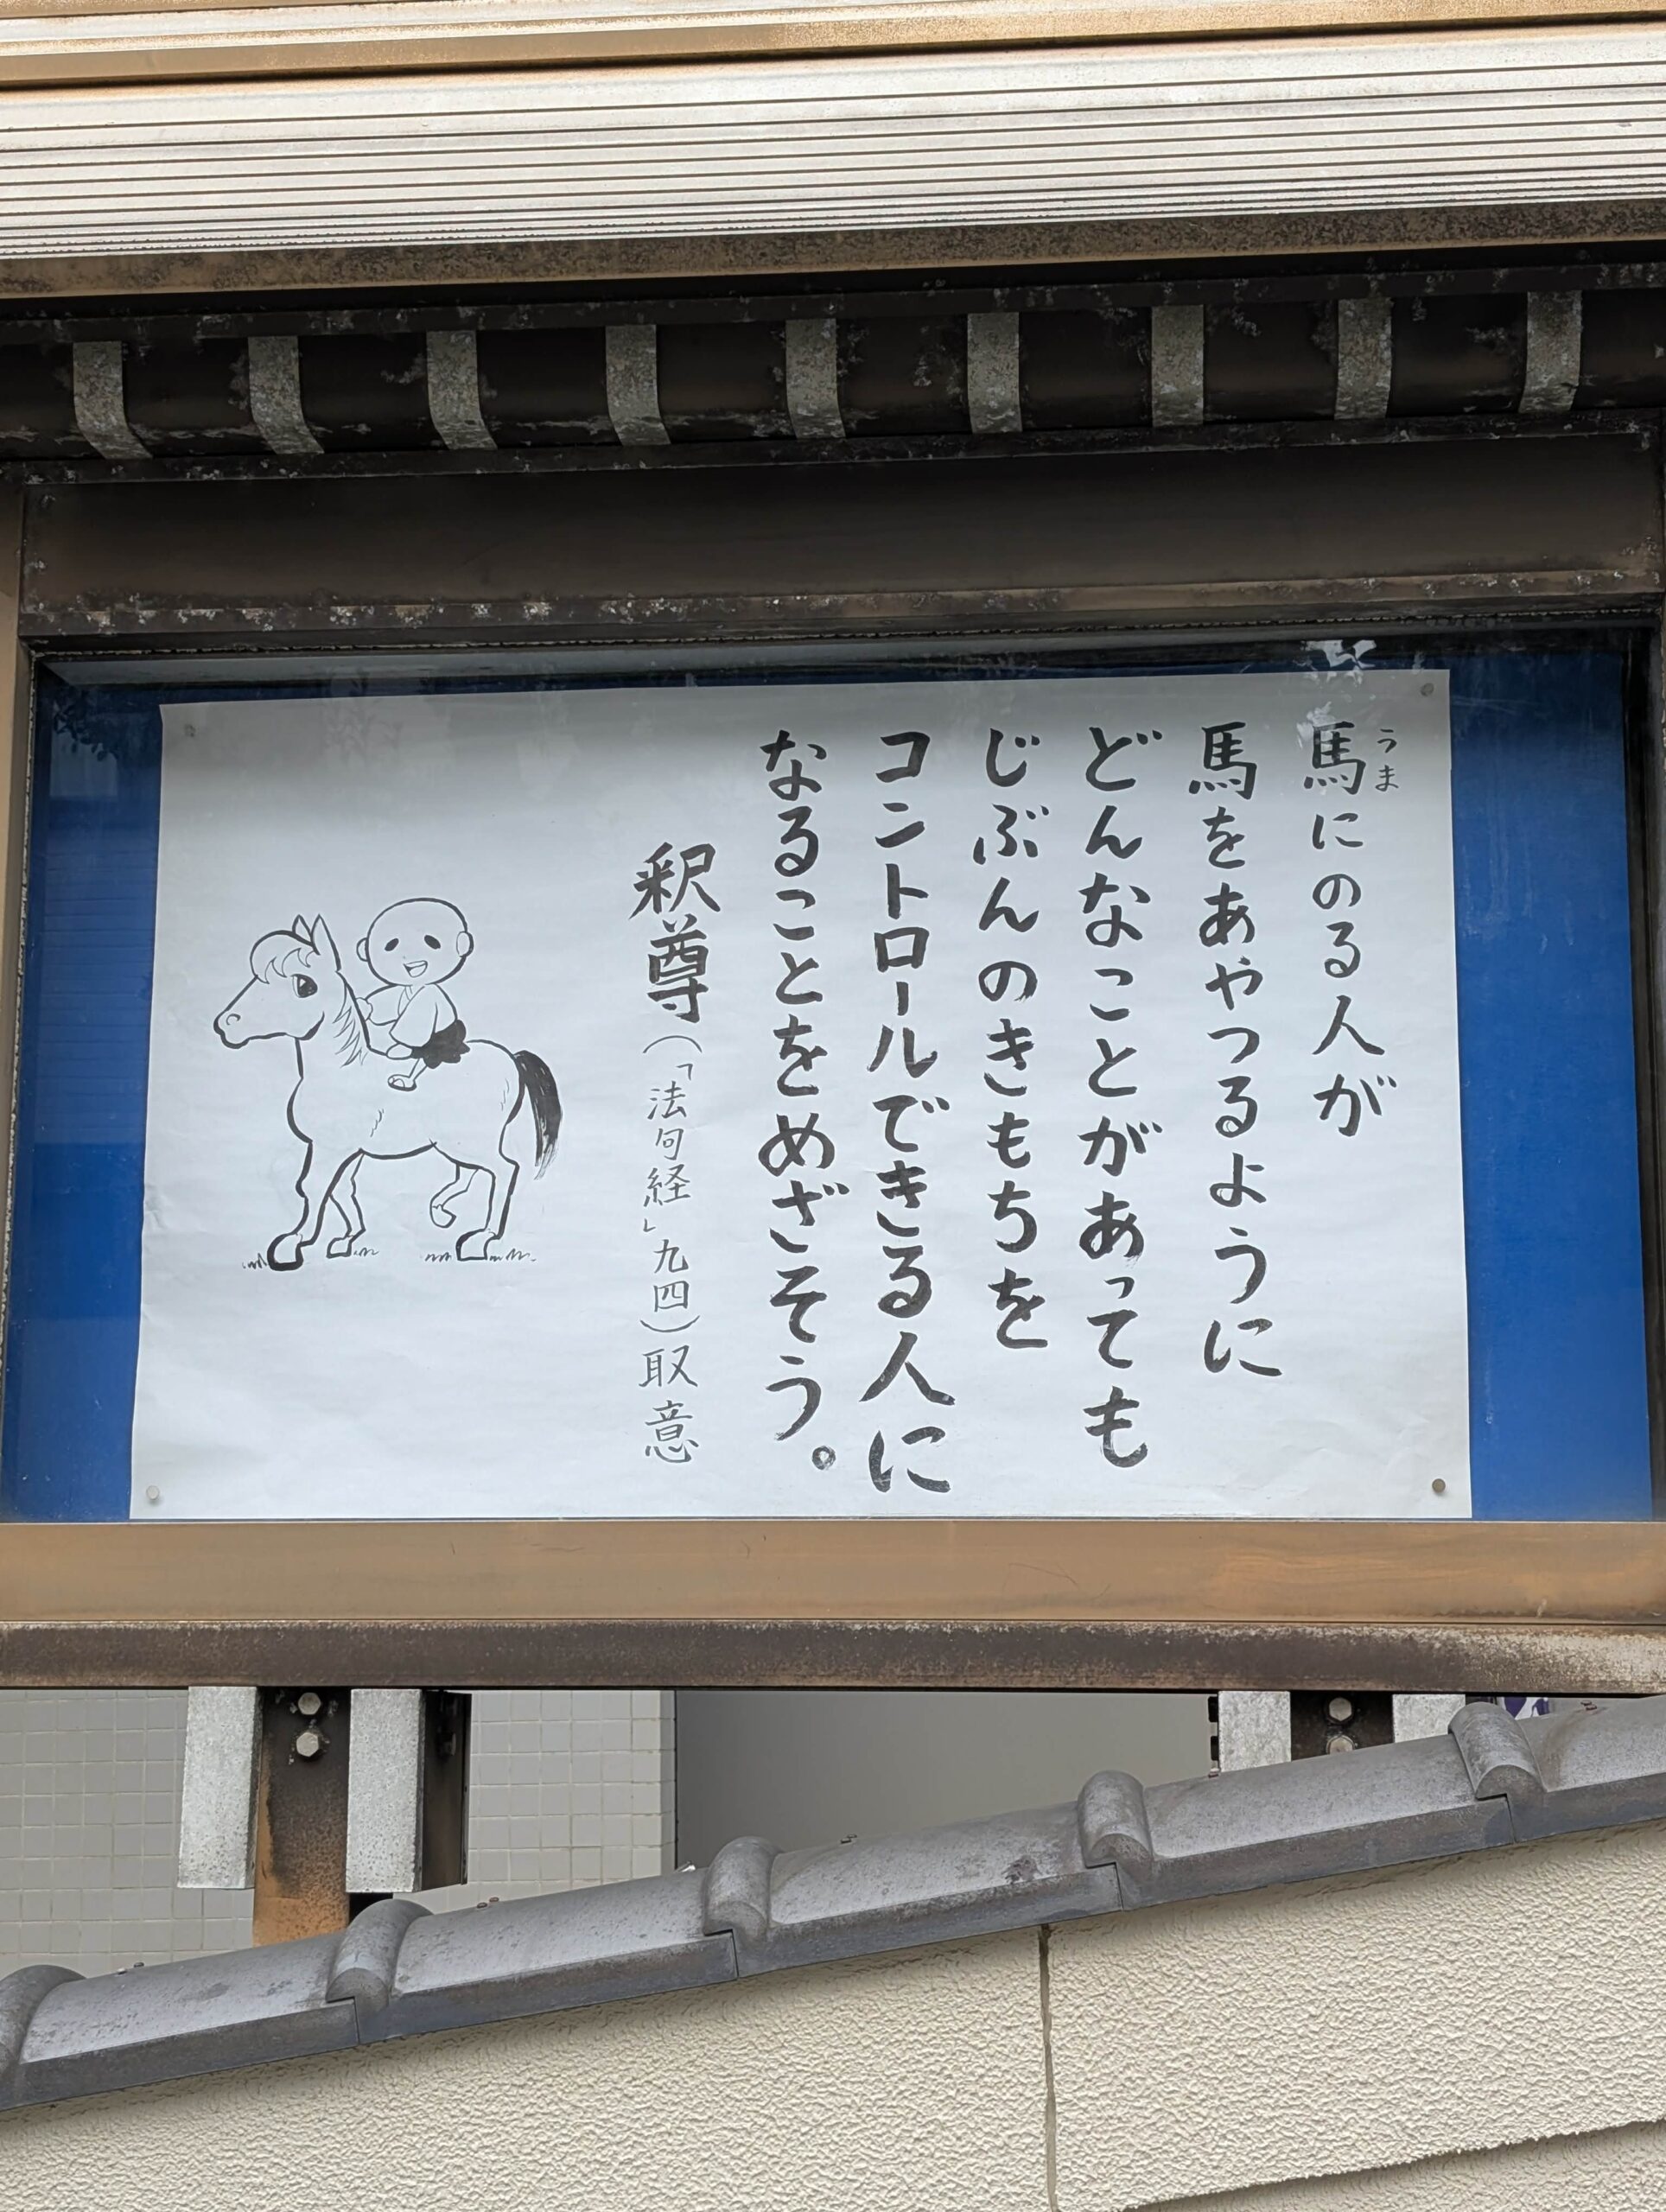 馬にのる人が
うま
馬をあやつるように
どんなことがあっても
じぶんのきもちを
コントロールできる人に
なることをめざそう。
釈尊(「法句経」九四)取意